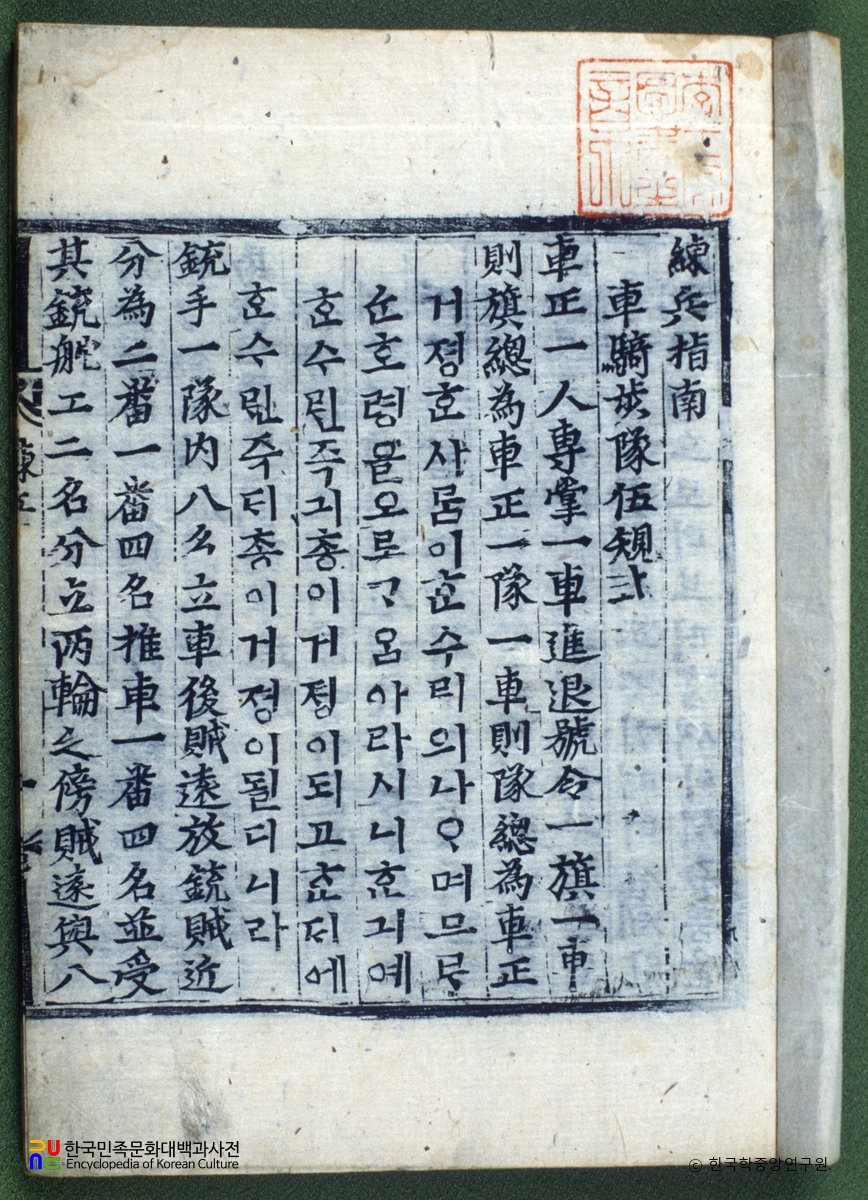 練兵指南
車騎步隊伍規式
車正一人專掌一車進退號令一旗一車
則旗總為車正一隊一車則隊總為車正
거졍ᄒᆞᆫ사ᄅᆞᆷ이ᄒᆞᆫ수릐의나ᄋᆞ며므
ᄂᆞᆫ호령을오로ᄀᆞᄋᆞᆷ아라시니ᄒᆞᆫ긔예
ᄒᆞᆫ수릔즉긔총이거졍이되고ᄒᆞᆫᄃᆡ에
ᄒᆞᆫ수릔즉ᄃᆡ총이거졍이될디니라
銃手一隊內八名立車後賊遠放銃賊近
分為二番一番四名推車一番四名並受
其銃舵工二名分立两輪之傍賊遠與八
한국민족문화대백과사전
Encyclopedia of Korean Culture
© 한국학중앙연구원